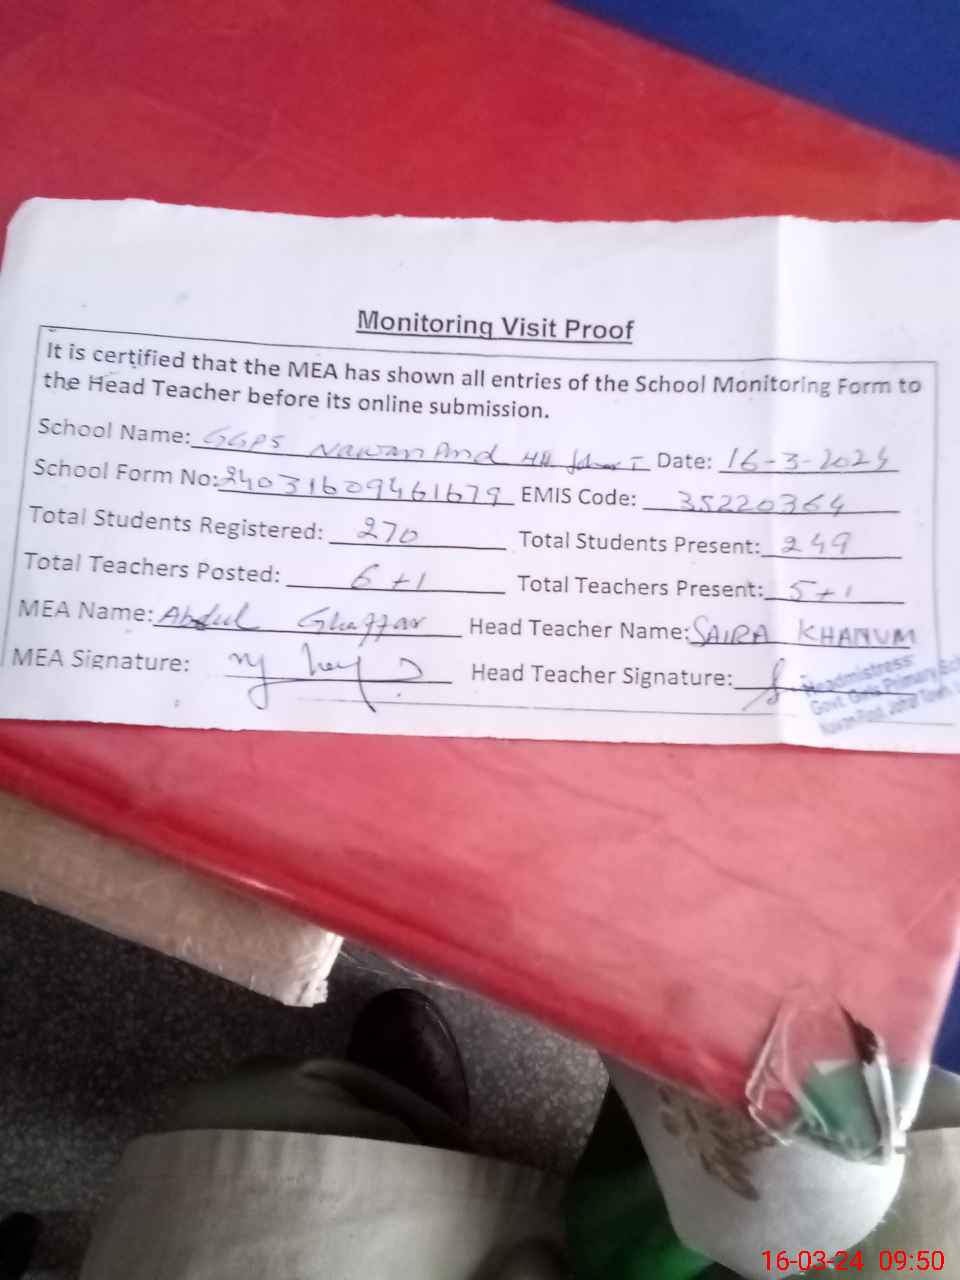 Monitoring Visit Proof
It is certified that the MEA has shown all entries of the School Monitoring Form to
the Head Teacher before its online submission.
School Name: GGPS Nawan Pind Date: 16-3-2024
School Form No: 24031609461679 EMIS Code: 35220364
Total Students Registered: 270 Total Students Present: 249
Total Teachers Posted: 6+1 Total Teachers Present: 5+1
MEA Name: Abdul Ghaffar Head Teacher Name: SAIRA KHANUM
MEA Signature: Head Teacher Signature:
Headmistress
Govt. Girls Primary
16-03-24 09:50